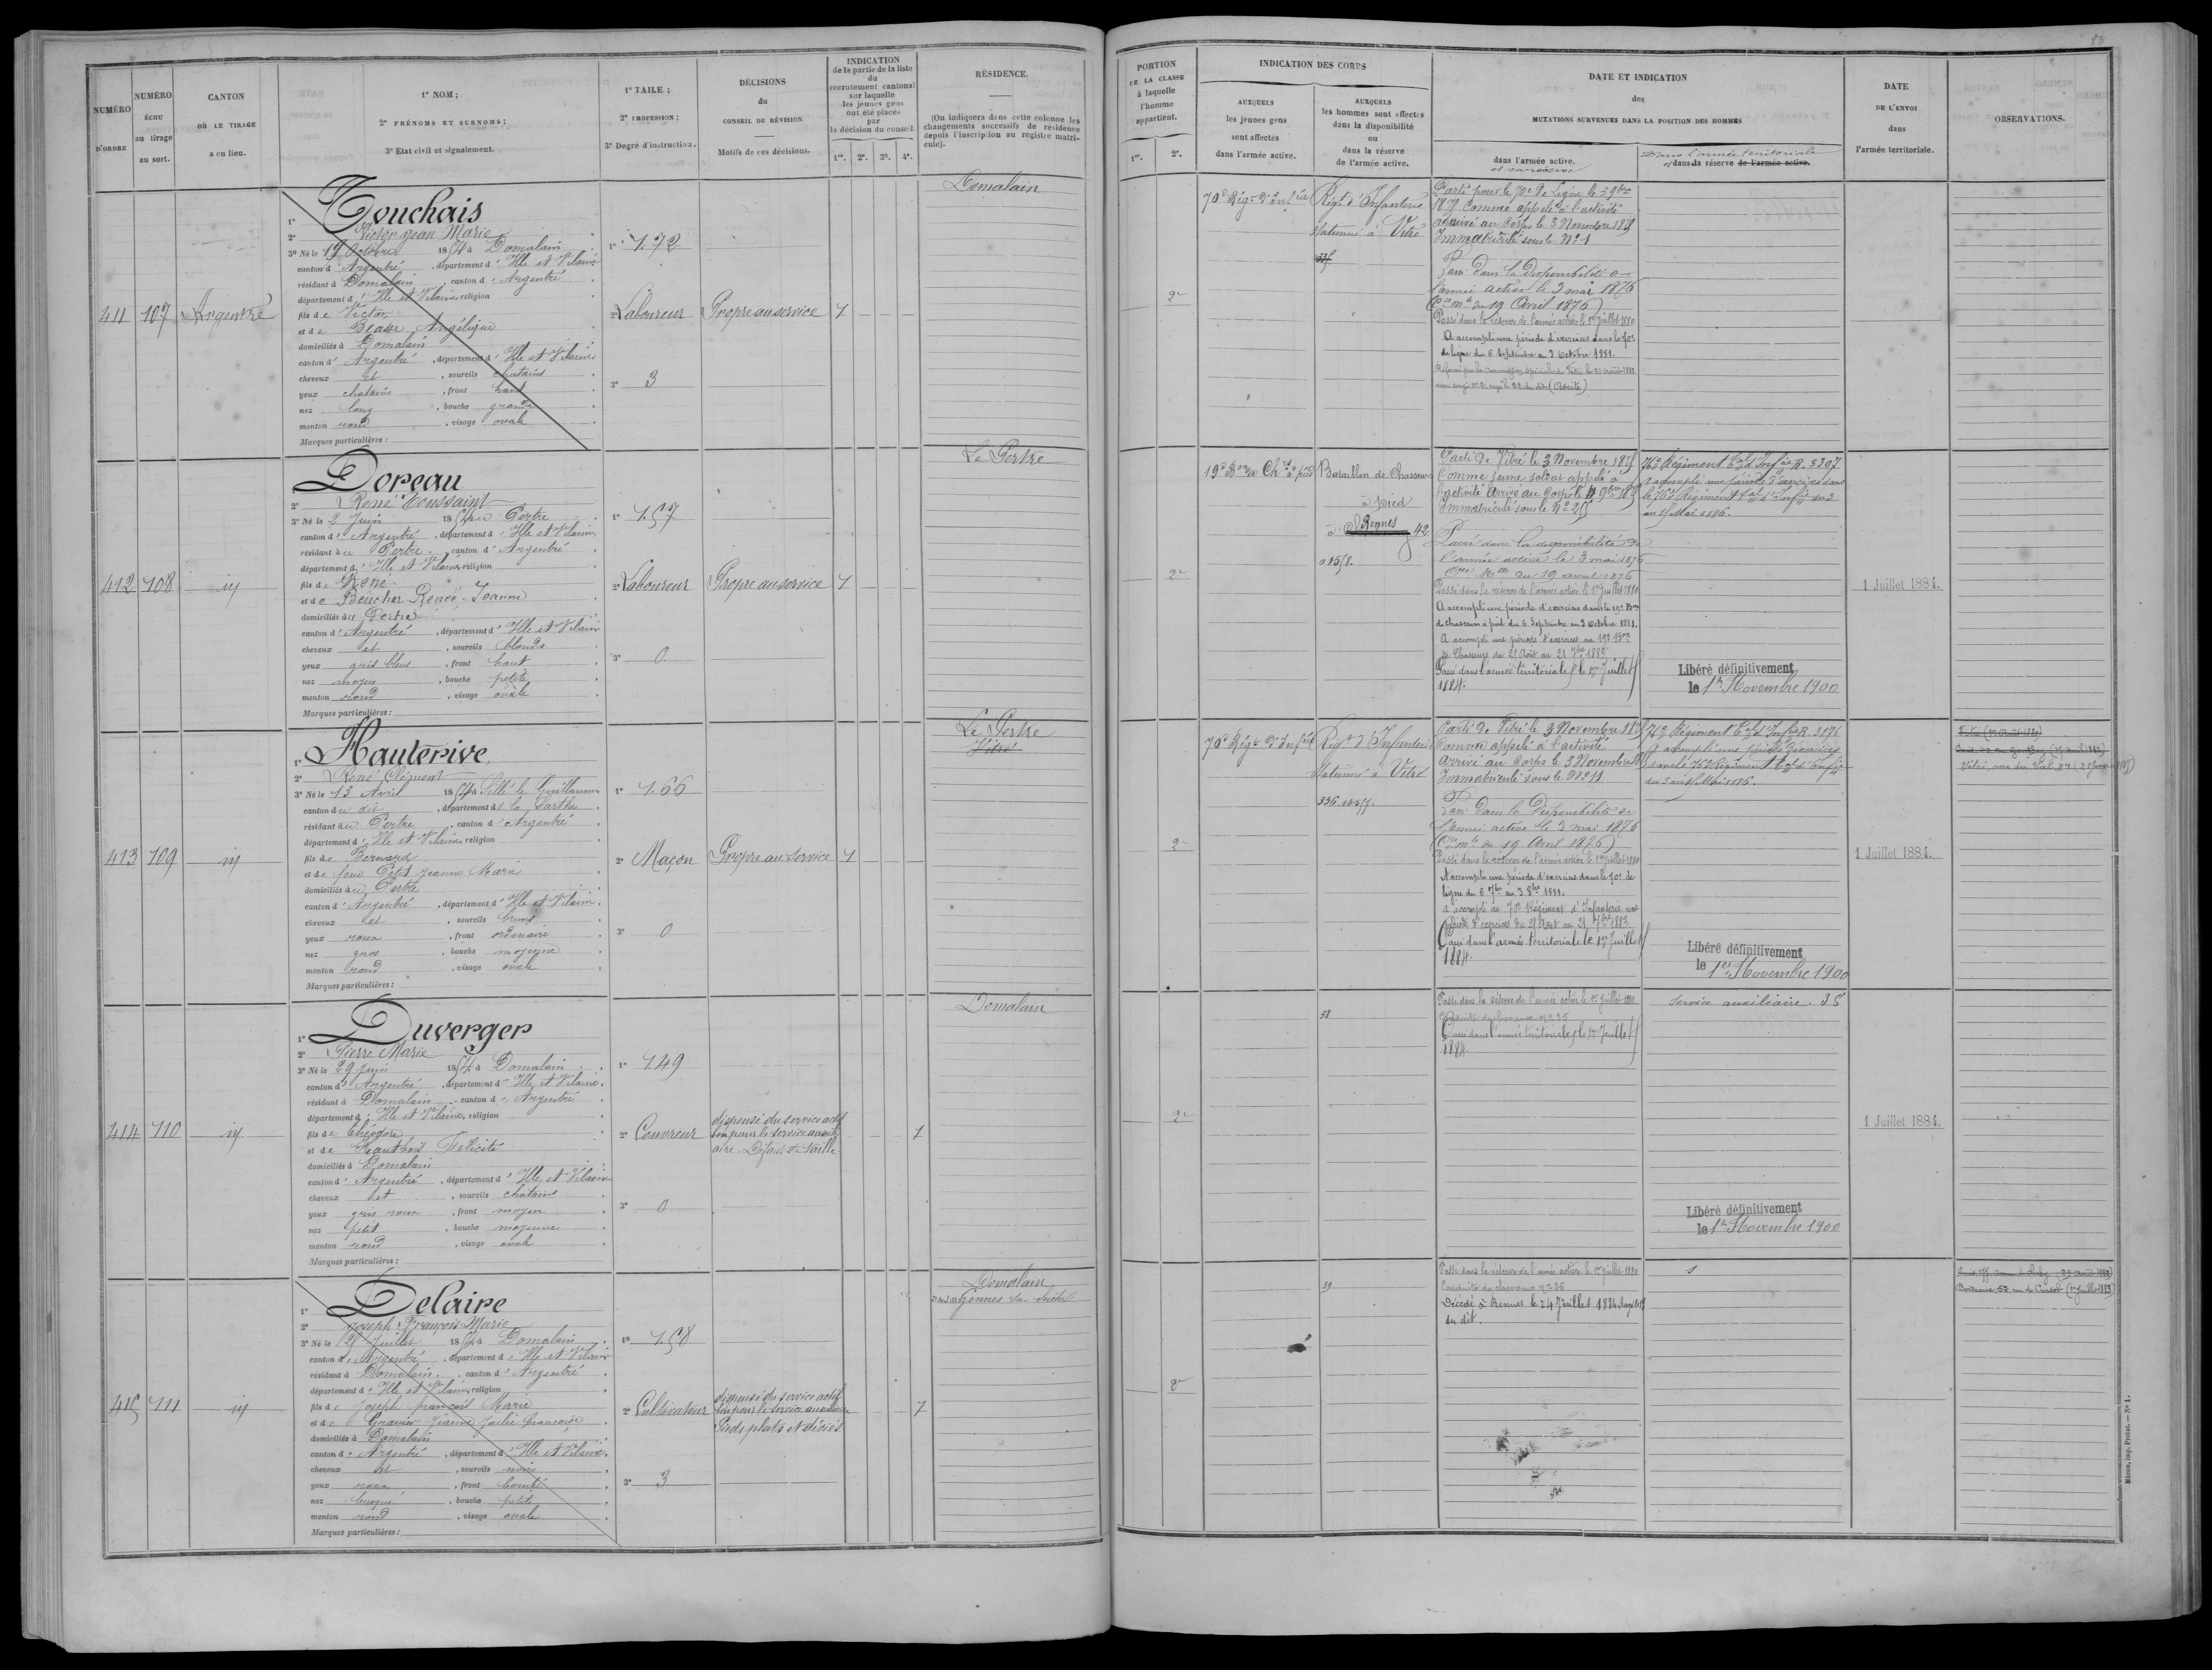 NUMÉRO D'ORDRE
NUMÉRO ÉCHU au tirage au sort.
CANTON OÙ LE TIRAGE a eu lieu.
1° NOM;
2° PRÉNOMS ET SURNOMS;
3° Etat civil et signalement.
1° TAILE;
2° PROFESSION;
3° Degré d'instruction.
DÉCISIONS du CONSEIL DE RÉVISION
Motifs de ces décisions.
INDICATION
de la partie de la liste
du
recrutement cantonal
sur laquelle
les jeunes gens
ont été placés
par
la décision du conseil
1re. 2e. 3e. 4e.
RÉSIDENCE.
(On indiquera dans cette colonne les
changements successifs de résidence
depuis l'inscription au registre matri-
cule).
PORTION
DE LA CLASSE
à laquelle
l'homme
appartient.
1re. 2e.
INDICATION DES CORPS
AUXQUELS
les jeunes gens
sont affectés
dans l'armée active.
AUXQUELS
les hommes sont affectés
dans la disponibilité
ou
dans la réserve
de l'armée active.
DATE ET INDICATION
des
MUTATIONS SURVENUES DANS LA POSITION DES HOMMES
dans l'armée active.
et sa réserve
Dans l'armée territoriale
et dans la réserve de l'armée active.
DATE
DE L'ENVOI
dans
l'armée territoriale.
OBSERVATIONS.
88
411 107 Argentré
1° Touchais
2° Victor Jean Marie
3° Né le 19 Octobre 1854 à Domalain
canton d'Argentré, département d'Ille et Vilaine
résidant à Domalain, canton d'Argentré
département d'Ille et Vilaine, religion
fils de Victor
et de Beasse Angélique
domiciliés à Domalain
canton d'Argentré, département d'Ille et Vilaine
cheveux et, sourcils chatains
yeux chatains, front haut
nez long, bouche grande
menton rond, visage ovale
Marques particulières:
1° 1.72
2° Laboureur
3° 3
Propre au service
1
Domalain
2e
70e Régt d'Infrie
Régt d'Infanterie
stationné à Vitré
335
Parti pour le 70e de Ligne le 3 9bre
1875 Comme appelé à l'activité
arrivé au Corps le 3 Novembre 1875
Immatriculé sous le N° 1
Passé dans la disponibilité de
l'armée active le 3 mai 1876
(Con mlle du 19 Avril 1876)
Passé dans la réserve de l'armée active le 1er Juillet 1880
A accompli une période d'exercices dans le 70e
de ligne du 6 Septembre au 3 Octobre 1881.
Réformé par la Commission spéciale de Vitré le 21 août 1882
412 108 id
1° Doreau
2° René Toussaint
3° Né le 2 Juin 1854 au Pertre
canton d'Argentré, département d'Ille et Vilaine
résidant au Pertre, canton d'Argentré
département d'Ille et Vilaine, religion
fils de René
et de Beucher Renée Jeanne
domiciliés au Pertre
canton d'Argentré, département d'Ille et Vilaine
cheveux et, sourcils blonds
yeux gris bleus, front haut
nez moyen, bouche petite
menton rond, visage ovale
Marques particulières:
1° 1.57
2° Laboureur
3° 0
Propre au service
1
Le Pertre
2e
19e Bon de Chrs à pied
Bataillon de Chasseurs
à pied
à Rennes 42
Parti de Vitré le 3 Novembre 1875
Comme jeune soldat appelé à
l'activité Arrivé au Corps le 4 9bre 1875
Immatriculé sous le N° 255
Passé dans la disponibilité de
l'armée active le 3 mai 1876
Con Mlle du 19 avril 1876
Passé dans la réserve de l'armée active le 1er Juillet 1880
A accompli une période d'exercices dans le 19e Bon
de chasseurs à pied du 6 Septembre au 3 Octobre 1881.
A accompli une période d'exercices au 19e Bon
de Chasseurs du 25 Août au 21 7bre 1883
Passé dans l'armée territoriale le 1er Juillet
1884.
76e Régiment tal d'Infie R. 3307
a accompli une période d'exercices dans
le 76e Régiment tal d'Infie du 3
au 15 Mai 1886.
Libéré définitivement
le 1er Novembre 1900
1 Juillet 1884.
413 109 id
1° Hauterive
2° René Clément
3° Né le 13 Avril 1854 à Sillé le Guillaume
canton du dit, département de la Sarthe
résidant au Pertre, canton d'Argentré
département d'Ille et Vilaine, religion
fils de Bernard
et de feue Petit Jeanne Marie
domiciliés au Pertre
canton d'Argentré, département d'Ille et Vilaine
cheveux et, sourcils bruns
yeux roux, front ordinaire
nez gros, bouche moyenne
menton rond, visage ovale
Marques particulières:
1° 1.66
2° Maçon
3° 0
Propre au service
1
Le Pertre
Vitré
2e
70e Régt d'Infrie
Régt d'Infanterie
stationné à Vitré
Parti de Vitré le 3 Novembre 1875
Comme appelé à l'activité
Arrivé au Corps le 3 Novembre
Immatriculé sous le N° 11
Passé dans la Disponibilité de
l'armée active le 3 mai 1876
(Con mlle du 19 Avril 1876)
Passé dans la réserve de l'armée active le 1er Juillet 1880
A accompli une période d'exercices dans le 70e de
ligne du 6 7bre au 3 8bre 1881.
a accompli au 70e Régiment d'Infanterie une
période d'exercices du 25 Août au 21 7bre 1883
Passé dans l'armée territoriale le 1er Juillet
1884.
76e Régiment tal d'Infie R. 3176
A accompli une période d'exercices
dans le 76e Régiment tal d'Infie
du 3 au 15 Mai 1886.
Libéré définitivement
le 1er Novembre 1900
1 Juillet 1884.
414 110 id
1° Duverger
2° Pierre Marie
3° Né le 29 Juin 1854 à Domalain
canton d'Argentré, département d'Ille et Vilaine
résidant à Domalain, canton d'Argentré
département d'Ille et Vilaine, religion
fils de Théodore
et de Félicité
domiciliés à Domalain
canton d'Argentré, département d'Ille et Vilaine
cheveux et, sourcils chatains
yeux gris roux, front moyen
nez petit, bouche moyenne
menton rond, visage ovale
Marques particulières:
1° 1.49
2° Couvreur
3° 0
dispensé du service actif
bon pour le service auxili
aire. Défaut de taille
1
Domalain
2e
38
Passé dans la réserve de l'armée active le 1er Juillet 1880
Passé dans l'armée territoriale le 1er Juillet
1884
service auxiliaire. 38
Libéré définitivement
le 1er Novembre 1900
1 Juillet 1884.
415 111 id
1° Delaire
2° Joseph François Marie
3° Né le 25 Juillet 1854 à Domalain
canton d'Argentré, département d'Ille et Vilaine
résidant à Domalain, canton d'Argentré
département d'Ille et Vilaine, religion
fils de Joseph François Marie
et de Gravier Jeanne Julie Françoise
domiciliés à Domalain
canton d'Argentré, département d'Ille et Vilaine
cheveux et, sourcils noirs
yeux roux, front bombé
nez busqué, bouche petite
menton rond, visage ovale
Marques particulières:
1° 1.58
2° Cultivateur
3° 3
dispensé du service actif
bon pour le service auxiliaire
Pieds plats et déviés
1
Domalain
Gennes sur Seiche
2e
39
Passé dans la réserve de l'armée active le 1er Juillet 1880
Décédé à Rennes le 24 Juillet 1884
du dit.
Mâcon, imp. Protat. — N° 1.